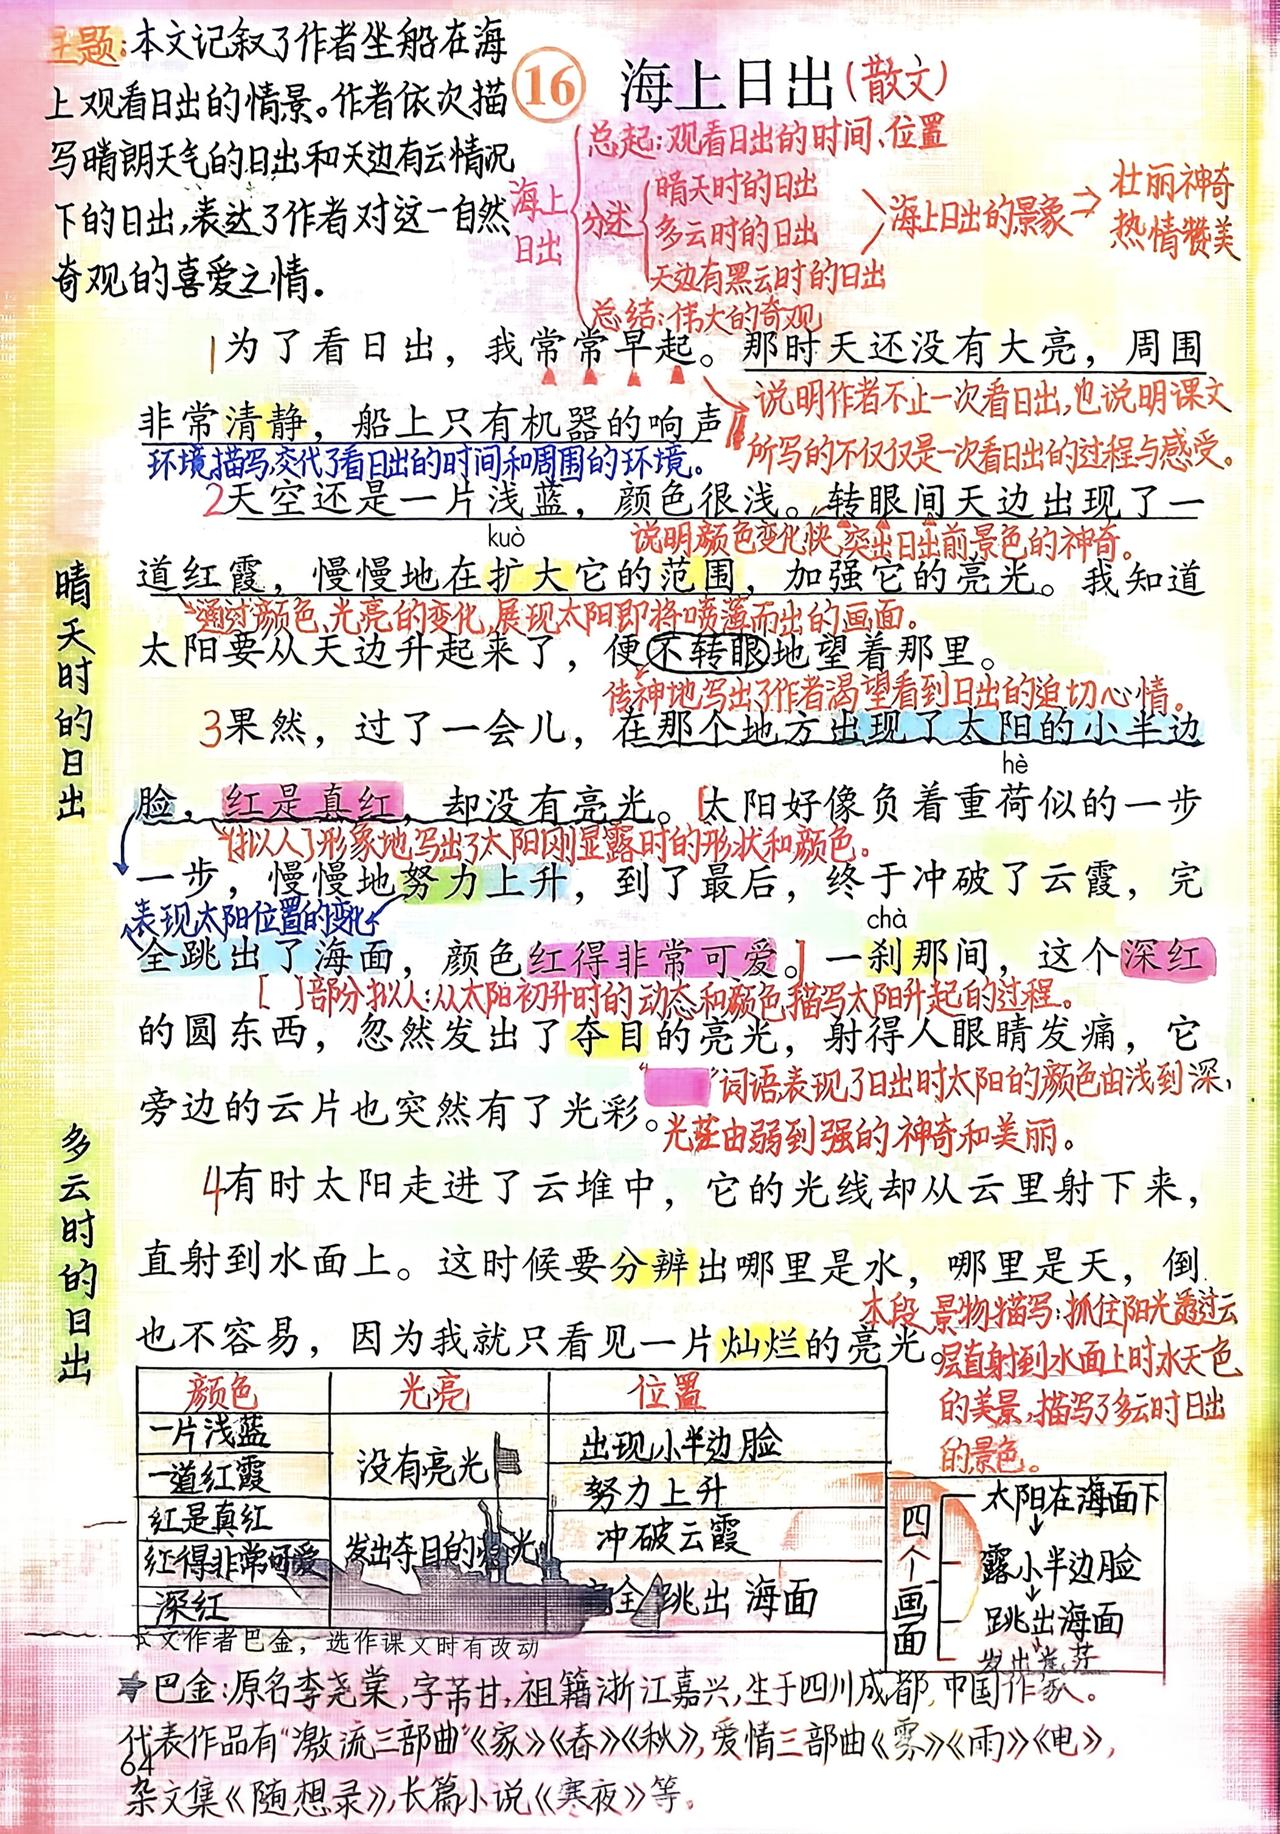 主题:本文记叙了作者坐船在海
上观看日出的情景。作者依次描
写晴朗天气的日出和天边有云情况
下的日出,表达了作者对这一自然
奇观的喜爱之情。
16 海上日出(散文)
海上
日出
总起:观看日出的时间、位置
分述
晴天时的日出
多云时的日出
天边有黑云时的日出
海上日出的景象
壮丽神奇
热情赞美
总结:伟大的奇观
1为了看日出，我常常早起。那时天还没有大亮，周围
说明作者不止一次看日出,也说明课文
非常清静，船上只有机器的响声
所写的不仅仅是一次看日出的过程与感受。
环境描写,交代了看日出的时间和周围的环境。
2天空还是一片浅蓝，颜色很浅。转眼间天边出现了一
说明颜色变化快,突出日出前景色的神奇。
kuò
道红霞，慢慢地在扩大它的范围，加强它的亮光。我知道
通过颜色、光亮的变化,展现太阳即将喷薄而出的画面。
太阳要从天边升起来了，便不转眼地望着那里。
传神地写出了作者渴望看到日出的迫切心情。
3果然，过了一会儿，在那个地方出现了太阳的小半边
hè
脸，红是真红，却没有亮光。[太阳好像负着重荷似的一步
[拟人]形象地写出了太阳刚显露时的形状和颜色。
一步，慢慢地努力上升，到了最后，终于冲破了云霞，完
表现太阳位置的变化
chà
全跳出了海面，颜色红得非常可爱。]一刹那间，这个深红
[ ]部分拟人:从太阳初升时的动态和颜色,描写太阳升起的过程。
的圆东西，忽然发出了夺目的亮光，射得人眼睛发痛，它
“ ”词语,表现了日出时太阳的颜色由浅到深,
旁边的云片也突然有了光彩。
光茫由弱到强的神奇和美丽。
4有时太阳走进了云堆中，它的光线却从云里射下来，
直射到水面上。这时候要分辨出哪里是水，哪里是天，倒
本段 景物描写:抓住阳光透过云
也不容易，因为我就只看见一片灿烂的亮光。
层直射到水面上时水天一色
的美景,描写了多云时日出
的景色。
晴天时的日出
多云时的日出
颜色 光亮 位置
一片浅蓝
一道红霞
红是真红
红得非常可爱
深红
没有亮光
发出夺目的亮光
出现小半边脸
努力上升
冲破云霞
完全跳出海面
四个画面
太阳在海面下
露小半边脸
跳出海面
发出光茫
本文作者巴金，选作课文时有改动
★巴金:原名李尧棠,字芾甘,祖籍浙江嘉兴,生于四川成都,中国作家。
代表作品有“激流三部曲”《家》《春》《秋》,爱情三部曲《雾》《雨》《电》,
64
杂文集《随想录》,长篇小说《寒夜》等。